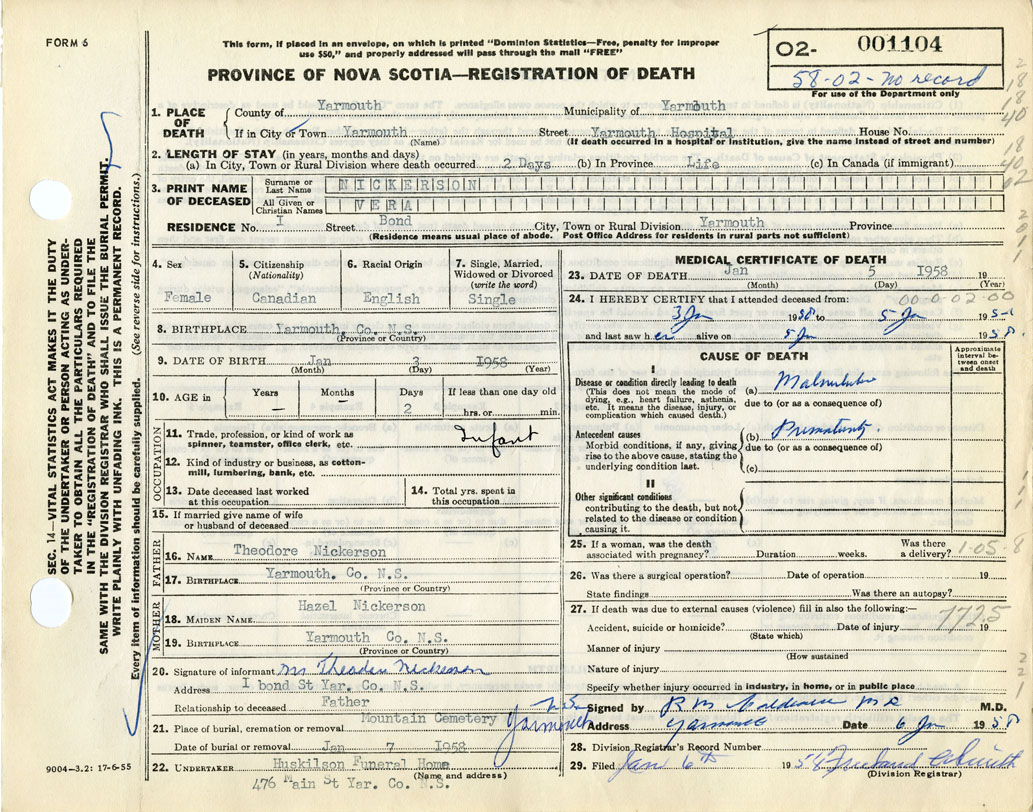 FORM 6
This form, if placed in an envelope, on which is printed "Dominion Statistics—Free, penalty for improper
use $50," and properly addressed will pass through the mail "FREE"
PROVINCE OF NOVA SCOTIA—REGISTRATION OF DEATH
O2- 001104
58-02-no record
For use of the Department only
SEC. 14—VITAL STATISTICS ACT MAKES IT THE DUTY
OF THE UNDERTAKER OR PERSON ACTING AS UNDER-
TAKER TO OBTAIN ALL THE PARTICULARS REQUIRED
IN THE "REGISTRATION OF DEATH" AND TO FILE THE
SAME WITH THE DIVISION REGISTRAR WHO SHALL ISSUE THE BURIAL PERMIT.
WRITE PLAINLY WITH UNFADING INK. THIS IS A PERMANENT RECORD.
Every item of information should be carefully supplied. (See reverse side for instructions.)
1. PLACE OF DEATH
County of Yarmouth Municipality of Yarmouth
If in City or Town Yarmouth Street Yarmouth Hospital House No.
(Name) (If death occurred in a hospital or institution, give the name instead of street and number)
2. LENGTH OF STAY (in years, months and days)
(a) In City, Town or Rural Division where death occurred 2 Days (b) In Province Life (c) In Canada (if immigrant)
3. PRINT NAME OF DECEASED
Surname or Last Name NICKERSON
All Given or Christian Names VERA
RESIDENCE No. I Street Bond City, Town or Rural Division Yarmouth Province
(Residence means usual place of abode. Post Office Address for residents in rural parts not sufficient)
4. Sex Female
5. Citizenship (Nationality) Canadian
6. Racial Origin English
7. Single, Married, Widowed or Divorced (write the word) Single
8. BIRTHPLACE Yarmouth, Co. N.S.
(Province or Country)
9. DATE OF BIRTH Jan 3 1958
(Month) (Day) (Year)
10. AGE in Years — Months — Days 2 If less than one day old hrs. or min.
OCCUPATION
11. Trade, profession, or kind of work as spinner, teamster, office clerk, etc. Infant
12. Kind of industry or business, as cotton-mill, lumbering, bank, etc.
13. Date deceased last worked at this occupation
14. Total yrs. spent in this occupation
15. If married give name of wife or husband of deceased
FATHER
16. NAME Theodore Nickerson
17. BIRTHPLACE Yarmouth. Co N.S.
(Province or Country)
MOTHER
18. MAIDEN NAME Hazel Nickerson
19. BIRTHPLACE Yarmouth Co. N.S.
(Province or Country)
20. Signature of informant Mr Theodore Nickerson
Address I bond St Yar. Co. N.S.
Relationship to deceased Father
21. Place of burial, cremation or removal Mountain Cemetery Yarmouth
Date of burial or removal Jan 7 1958
22. UNDERTAKER Huskilson Funeral Home
(Name and address)
476 Main St Yar. Co. N.S.
9004-3.2: 17-6-55
MEDICAL CERTIFICATE OF DEATH
23. DATE OF DEATH Jan 5 1958 19
(Month) (Day) (Year)
24. I HEREBY CERTIFY that I attended deceased from: 00-0-02-00
3 Jan 1958 to 5 Jan 195
and last saw her alive on 5 Jan 1958
CAUSE OF DEATH
Approximate interval between onset and death
I
Disease or condition directly leading to death
(This does not mean the mode of dying, e.g., heart failure, asthenia, etc. It means the disease, injury, or complication which caused death.)
(a) Malnutrition
due to (or as a consequence of)
Antecedent causes
Morbid conditions, if any, giving rise to the above cause, stating the underlying condition last.
(b) Prematurity
due to (or as a consequence of)
(c)
II
Other significant conditions
contributing to the death, but not related to the disease or condition causing it.
25. If a woman, was the death associated with pregnancy? Duration weeks. Was there a delivery? 1-05-8
26. Was there a surgical operation? Date of operation 19
State findings Was there an autopsy?
27. If death was due to external causes (violence) fill in also the following:—
7725
Accident, suicide or homicide? Date of injury 19
(State which)
Manner of injury
(How sustained
Nature of injury
Specify whether injury occurred in industry, in home, or in public place
Signed by R M M.D.
Address Yarmouth Date 6 Jan 1958
28. Division Registrar's Record Number
29. Filed Jan 6th 1958
(Division Registrar)